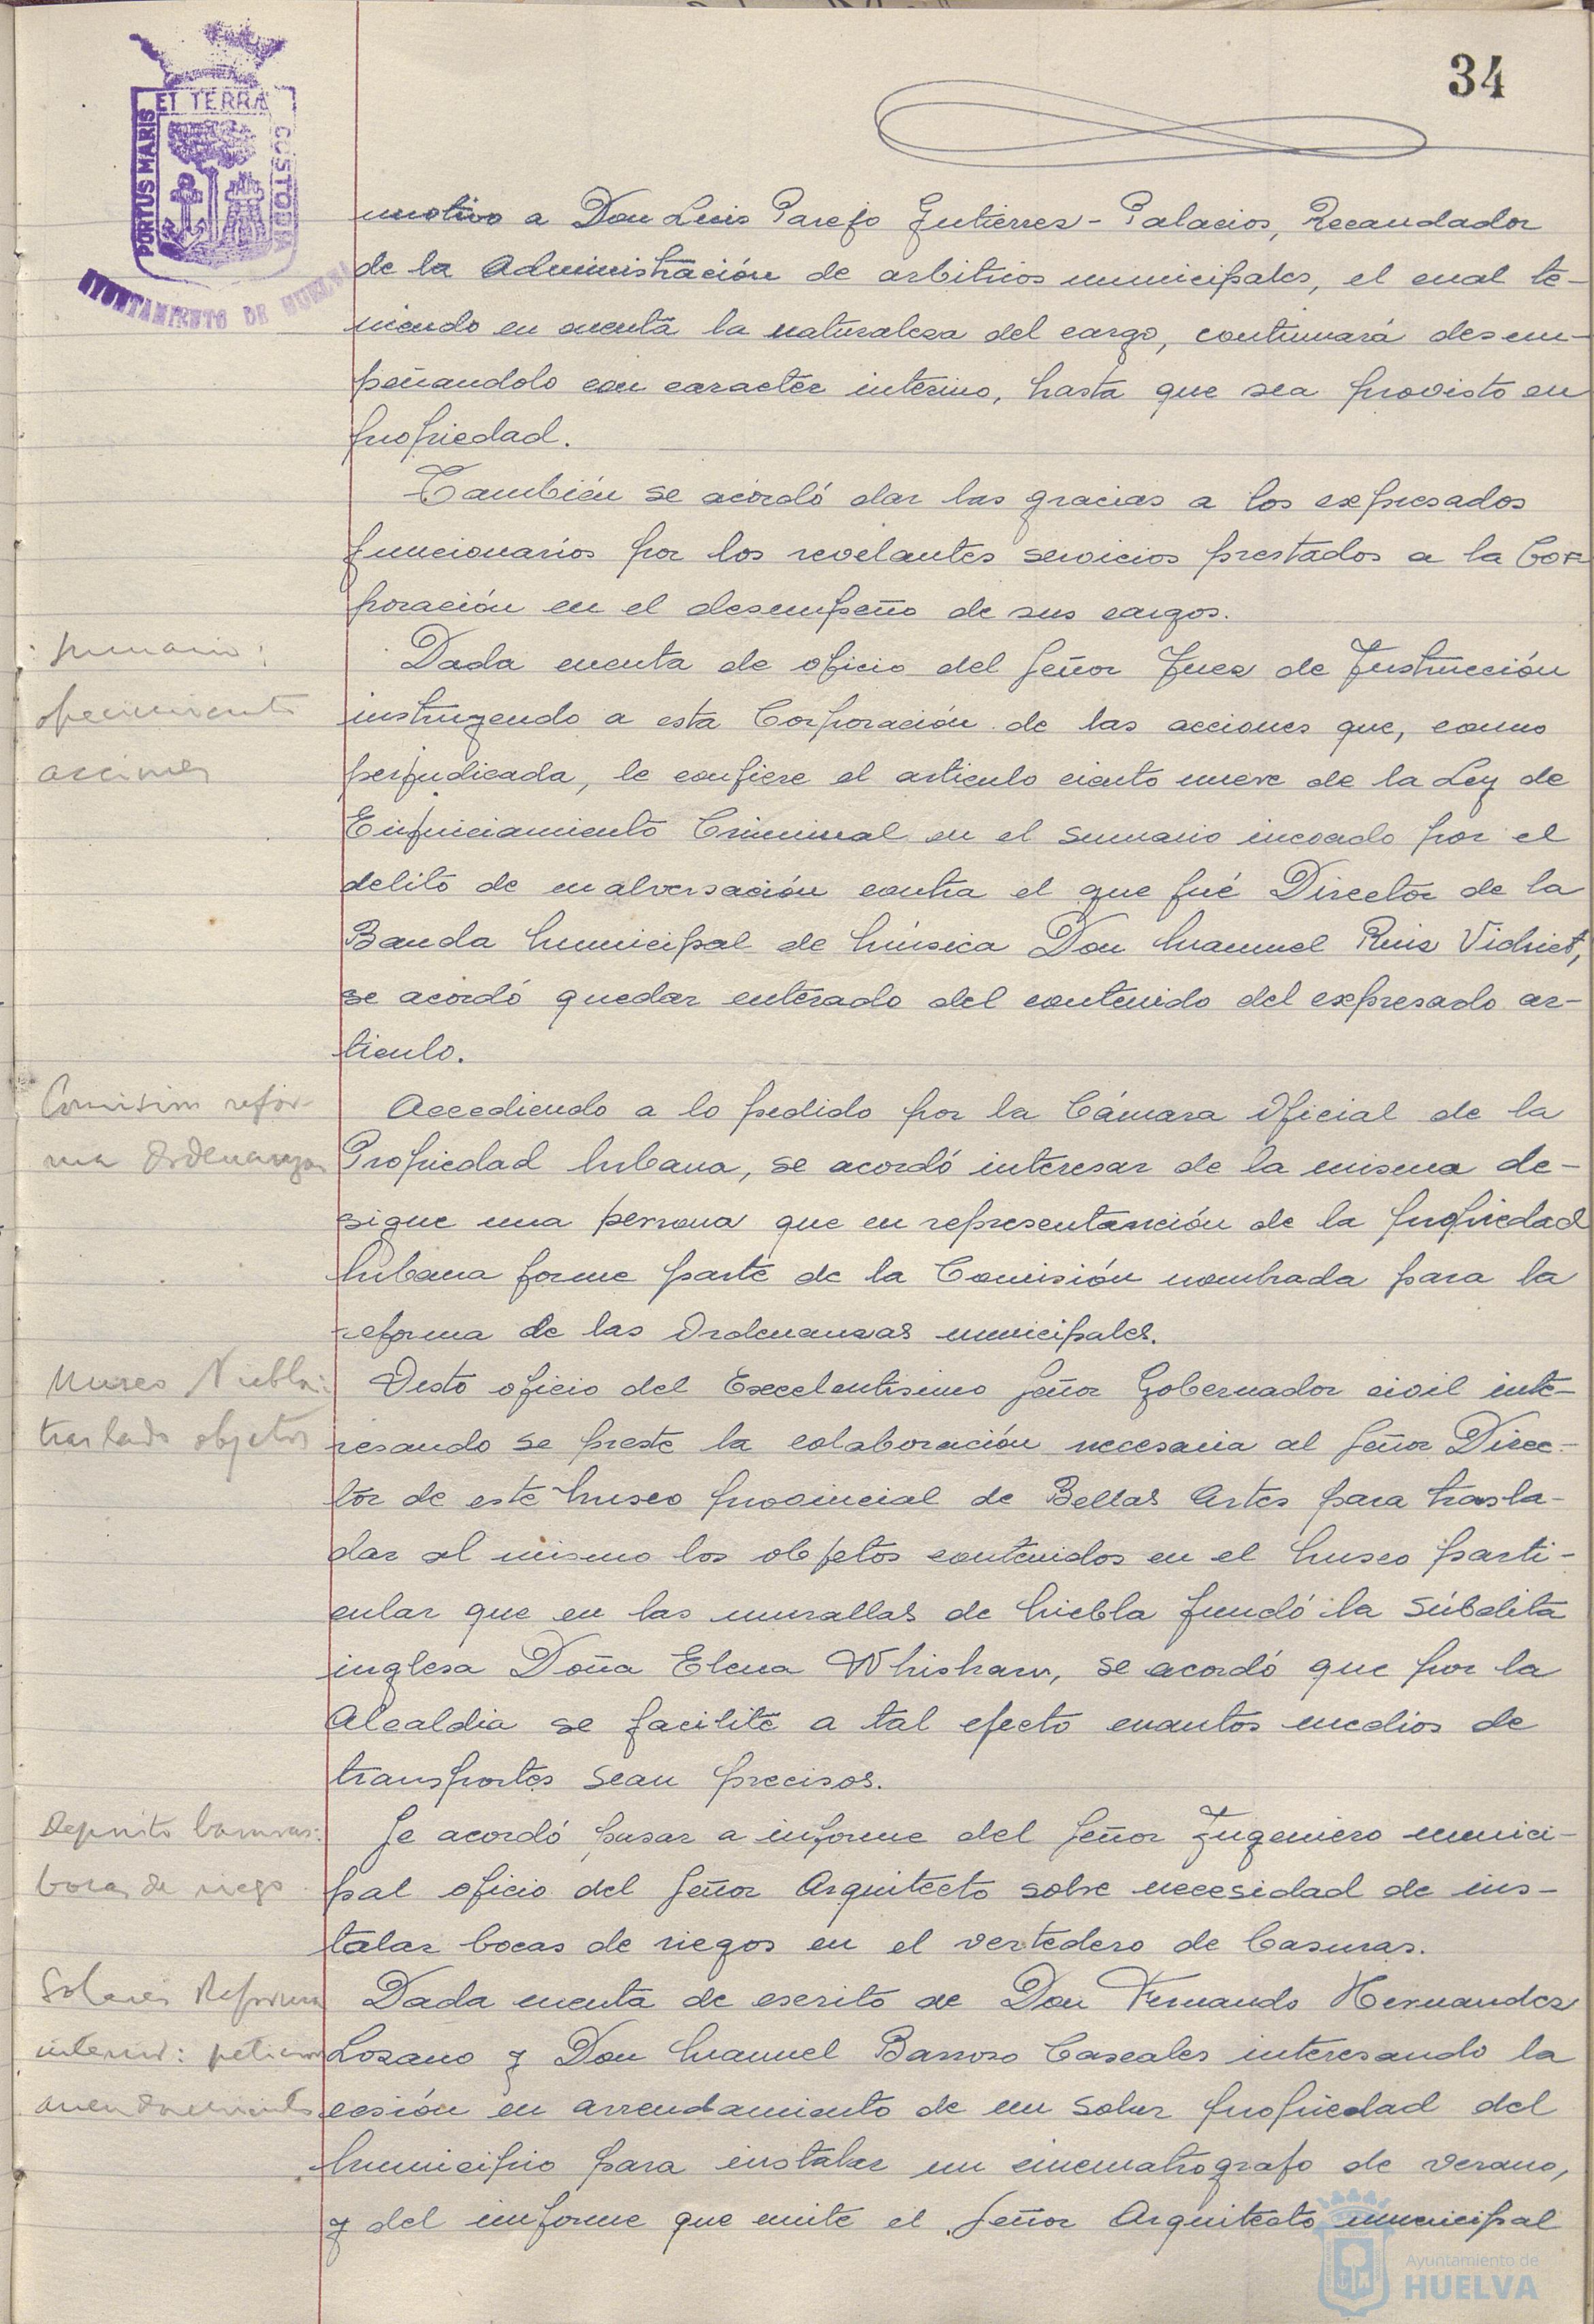 34
ET TERRA
PORTUS MARIS
CUSTODIA
AYUNTAMIENTO DE HUELVA
motivo a Don Luis Parejo Gutierrez-Palacios, Recaudador
de la Administración de arbitrios municipales, el cual te-
niendo en cuenta la naturaleza del cargo, continuará desem-
peñandolo con caracter interino, hasta que sea provisto en
propiedad.
También se acordó dar las gracias a los expresados
funcionarios por los revelantes servicios prestados a la Cor
poración en el desempeño de sus cargos.
Sumario:
ofrecimiento
acciones
Dada cuenta de oficio del Señor Juez de Instrucción
instruyendo a esta Corporación de las acciones que, como
perjudicada, le confiere el articulo ciento nueve de la Ley de
Enjuiciamiento Criminal en el sumario incoado por el
delito de malversación contra el que fué Director de la
Banda Municipal de Música Don Manuel Ruiz Vidriet,
se acordó quedar enterado del contenido del expresado ar-
ticulo.
Comision refor-
ma Ordenanzas
Accediendo a lo pedido por la Cámara Oficial de la
Propiedad Urbana, se acordó interesar de la misma de-
signe una persona que en representanción de la propiedad
Urbana forme parte de la Comisión nombrada para la
reforma de las Ordenanzas municipales.
Museo Niebla:
traslado objetos
Visto oficio del Excelentisimo Señor Gobernador civil inte-
resando se preste la colaboración necesaria al Señor Direc-
tor de este Museo provincial de Bellas Artes para trasla-
dar al mismo los objetos contenidos en el Museo parti-
cular que en las murallas de Niebla fundó la súbdita
inglesa Doña Elena Whishaw, se acordó que por la
Alcaldia se facilite a tal efecto cuantos medios de
transportes sean precisos.
Deposito basuras:
bocas de riego
Se acordó pasar a informe del Señor Ingeniero munici-
pal oficio del Señor Arquitecto sobre necesidad de ins-
talar bocas de riegos en el vertedero de basuras.
Solares Reforma
interior: peticion
arrendamiento
Dada cuenta de escrito de Don Fernando Hernandez
Lozano y Don Manuel Barroso Cascales interesando la
cesión en arrendamiento de un solar propiedad del
Municipio para instalar un cinematografo de verano,
y del informe que emite el Señor Arquitecto municipal
Ayuntamiento de
HUELVA